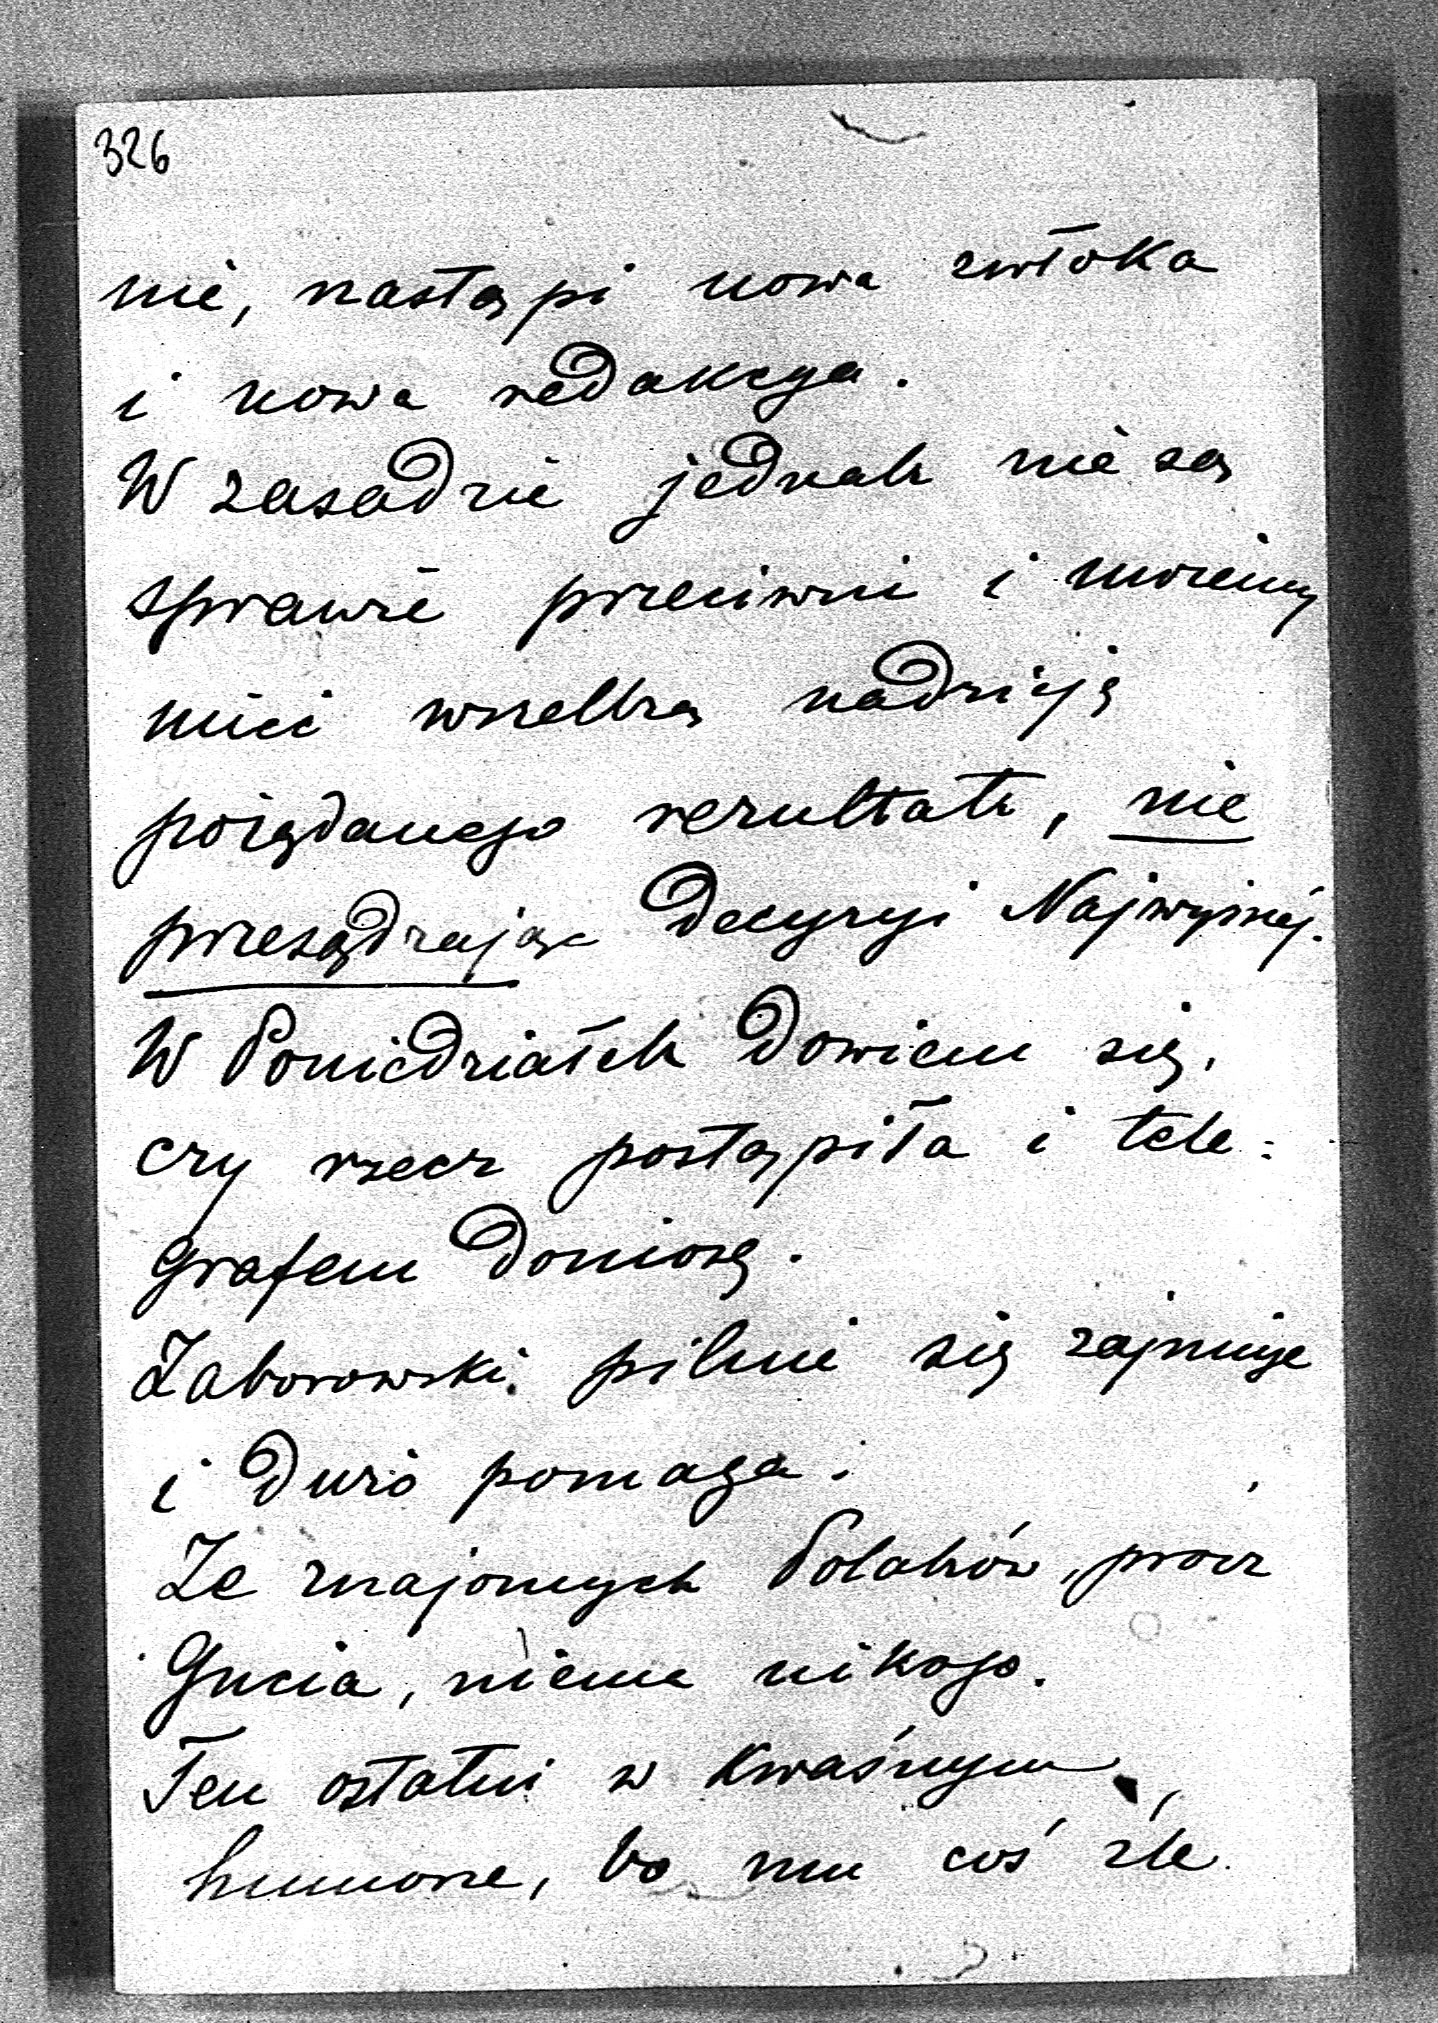 326
nie, nastąpi nowa zwłoka
i nowa redakcya.
W zasadzie jednak nie są
sprawie przeciwni i możemy
mieć wszelką nadzieję
pożądanego rezultatu, nie
przesądzając decyzyi Najwyższej.
W Poniedziałek dowiem się,
czy rzecz postąpiła i tele:
grafem doniosę.
Zaborowski pilnie się zajmuje
i dużo pomaga.
Ze znajomych Polaków, prócz
Gucia, niema nikogo.
Ten ostatni w kwaśnym
humorze, bo mu coś źle